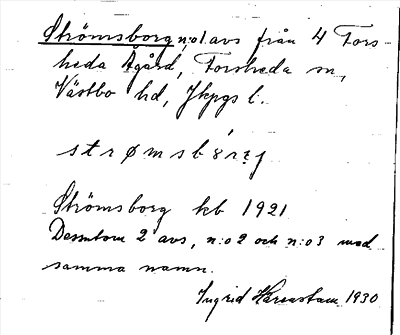 Strömsborg n:o1 avs från 4 Fors-
heda Ågård, Forsheda sn,
Västbo hd, Jkpgs l.
strømsbórj
Strömsborg kb 1921
Dessutom 2 avs, n:o 2 och n:o 3 med
samma namn.
Ingrid 1930